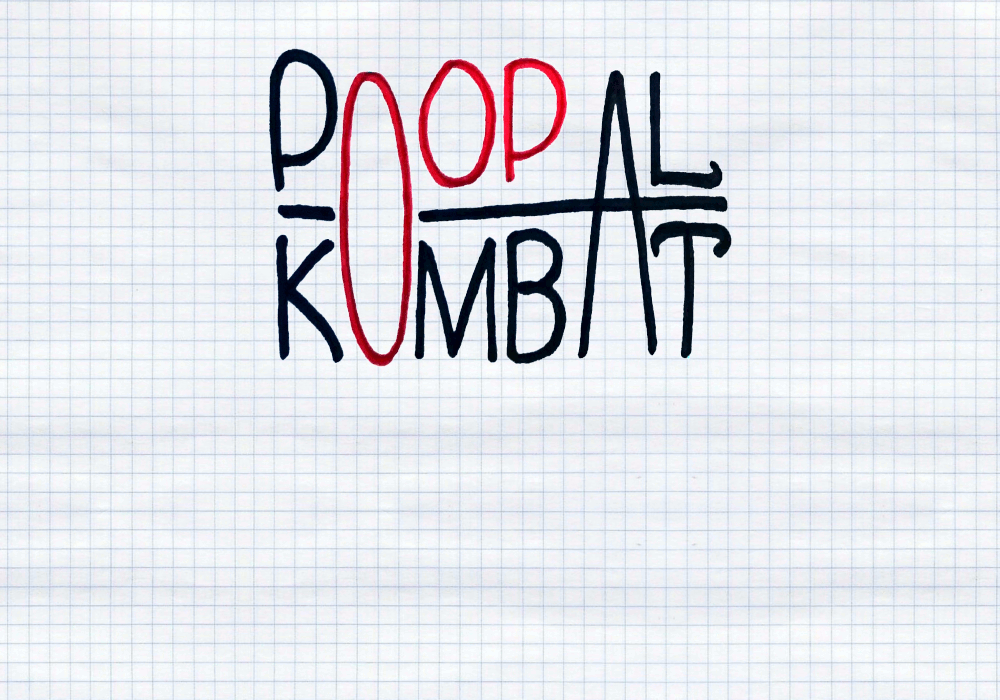 POOPAL
KOMBAT